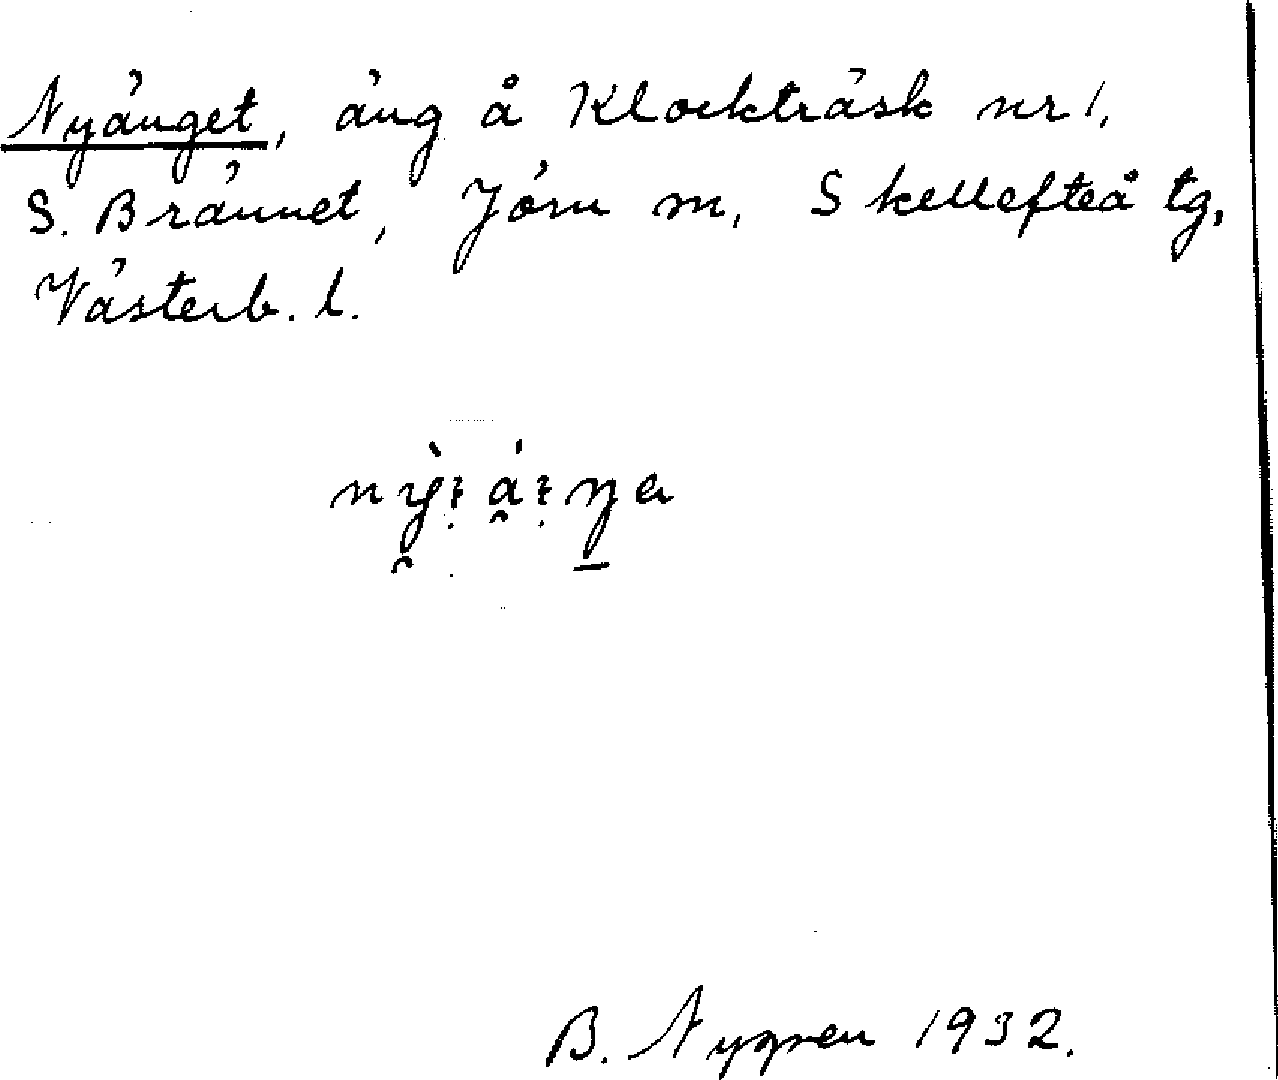 Nyänget, äng å Klockträsk nr 1,
S. Brännet, Jörn sn, Skellefteå tg,
Västerb. l.
B. Nygren 1932.